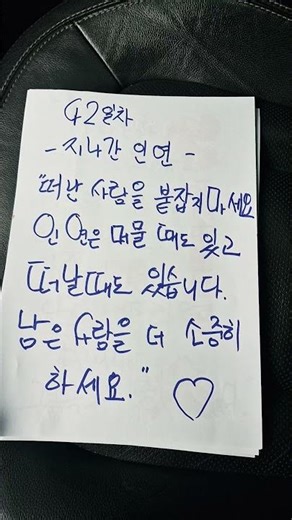 42일차
- 지나간 인연 -
"떠난 사람을 붙잡지 마세요
인연은 머물 때도 있고
떠날때도 있습니다.
남은 사람을 더 소중히
하세요." ♡